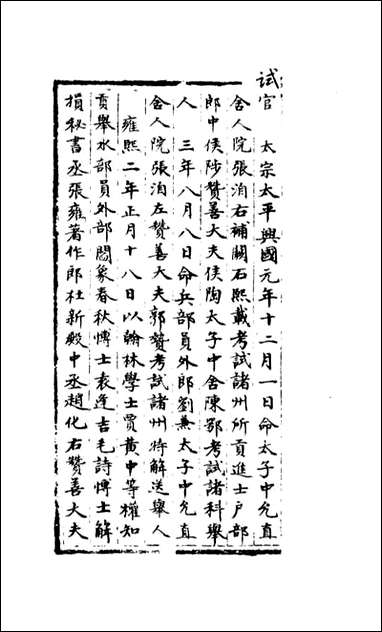 试官　太宗太平興國元年十二月一日命太子中允直
舍人院張洎右補闕石熙載考試諸州所貢進士户部
郎中侯陟贊善大夫侯陶太子中舍陳鄂考試諸科舉
人　三年八月八日命兵部員外郎劉兼太子中允直
舍人院張洎左贊善大夫郭贄考試諸州特解送舉人
雍熙二年正月十八日以翰林學士賈黄中等權知
貢舉水部員外部閻象春秋愽士袁逢吉毛詩愽士解
損秘書丞張雍著作郎杜新殿中丞趙化右贊善大夫